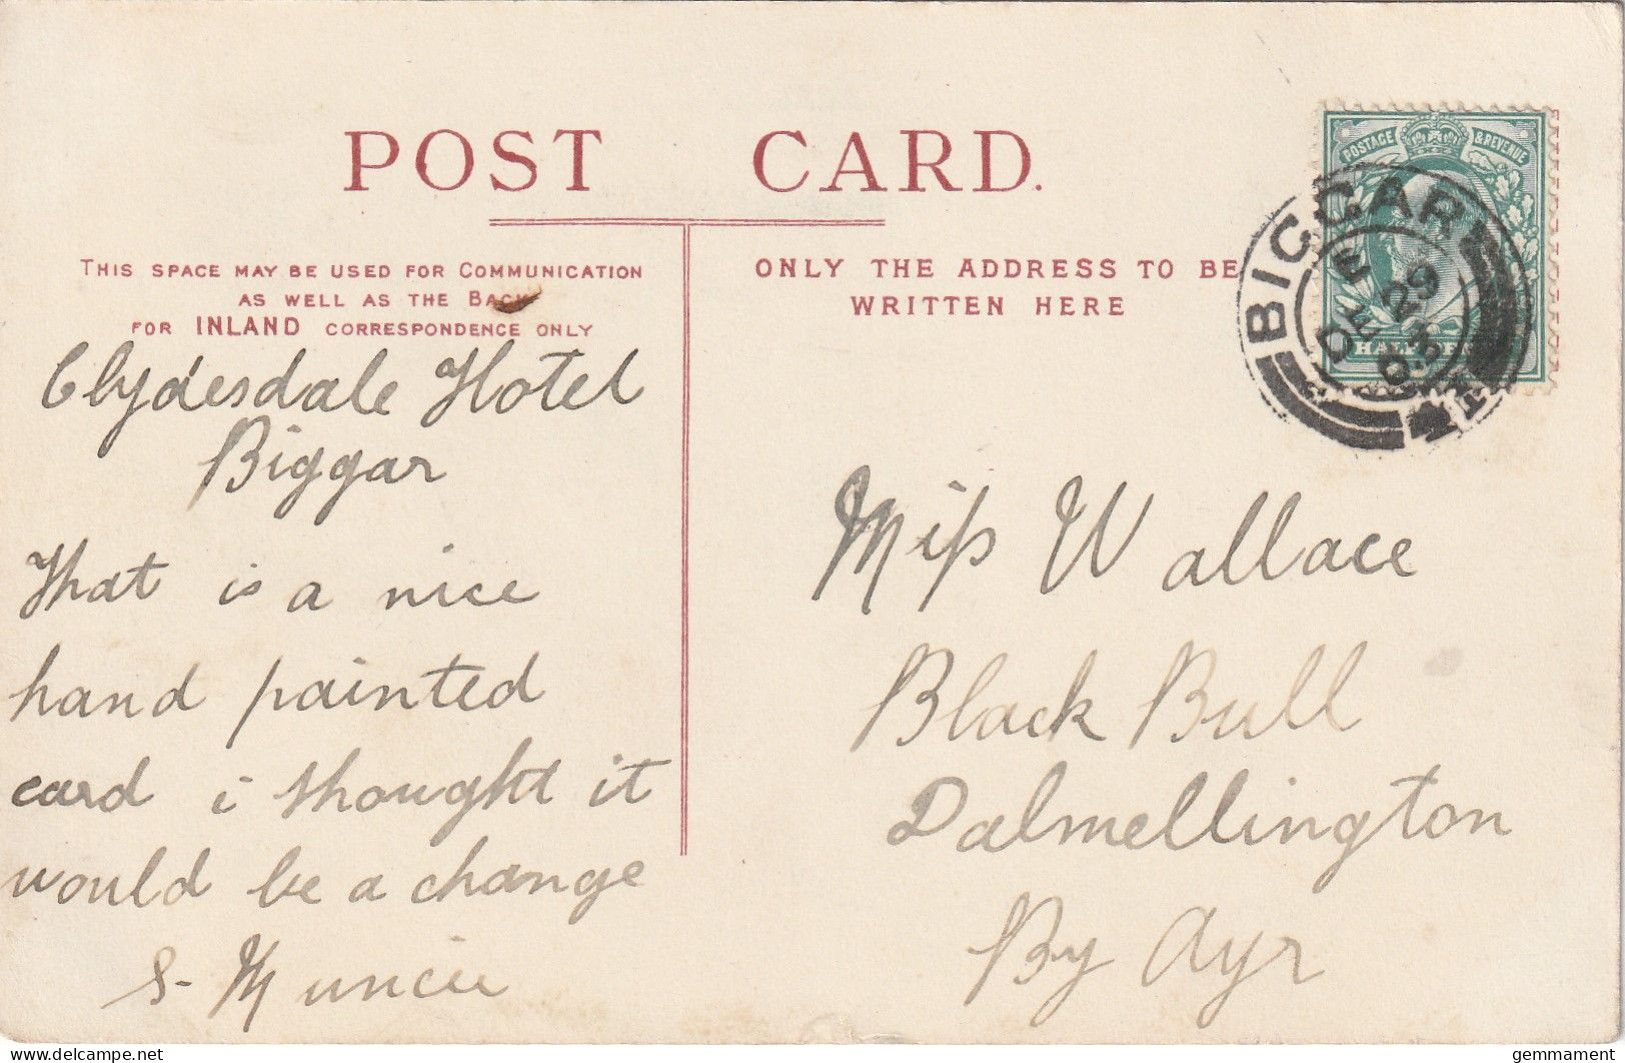 POST CARD.
THIS SPACE MAY BE USED FOR COMMUNICATION
AS WELL AS THE BACK
FOR INLAND CORRESPONDENCE ONLY
Clydesdale Hotel
Biggar
That is a nice
hand painted
card i thought it
would be a change
S- Muncie
ONLY THE ADDRESS TO BE
WRITTEN HERE
POSTAGE & REVENUE
BIGGAR
DE 29
03
Miss Wallace
Black Bull
Dalmellington
By Ayr
delcampe.net
gemmament